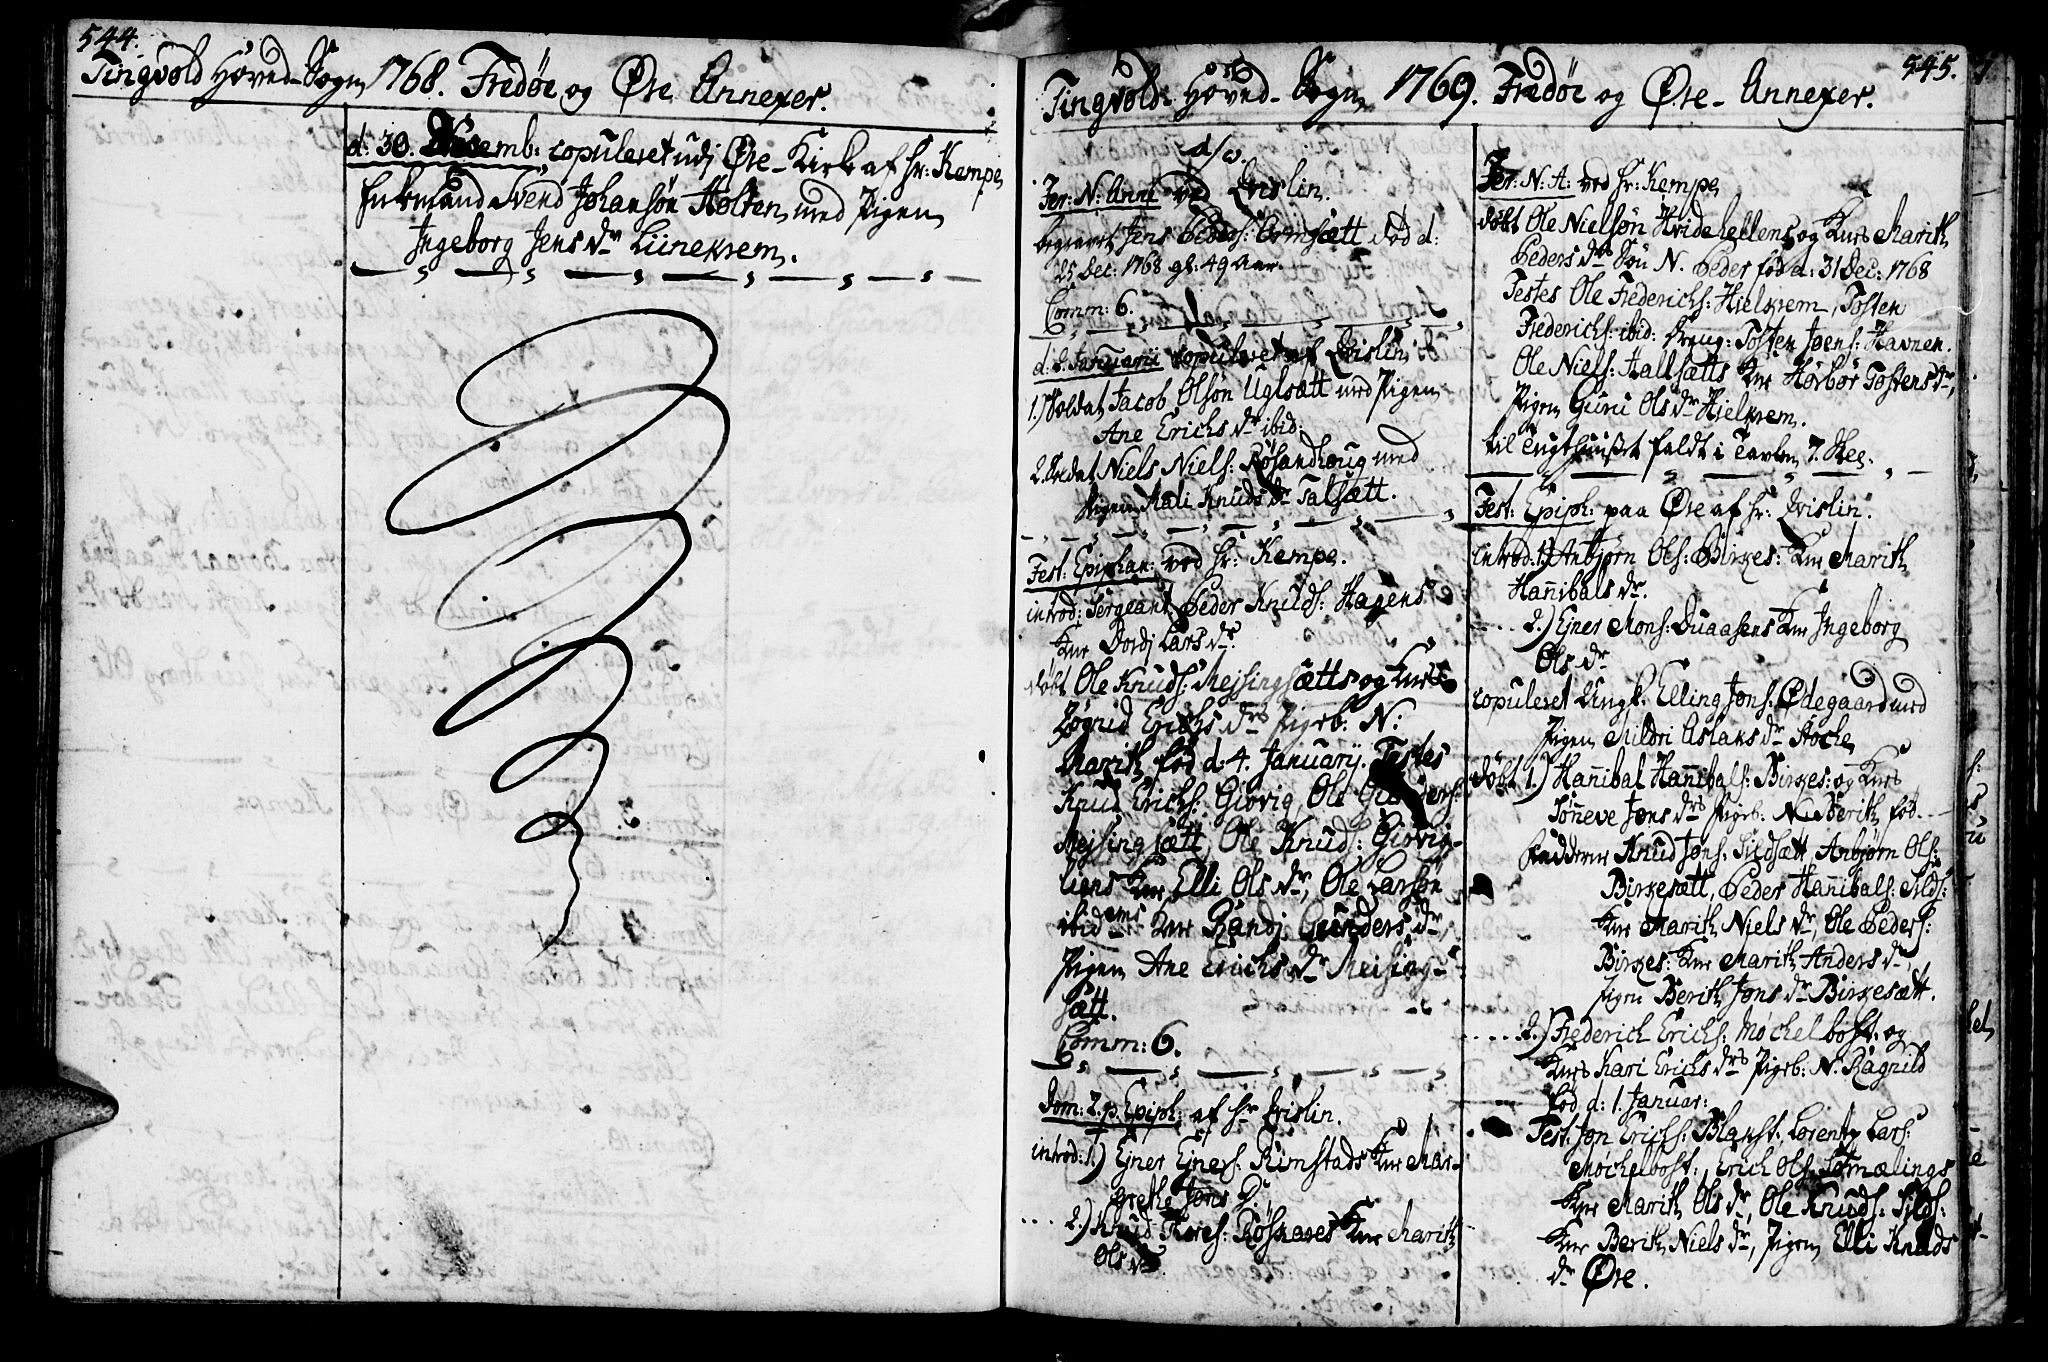 544.
Tingvold Hoved-Sogn 1768. Fredøe og Øre Annexer.
d: 30. Decemb: copuleret udj Øre-Kirke af Hr: Kempe
Enkemand Svend Johansøn Holten med Pigen
Ingeborg Jens Dr Liinekrem.
545.
Tingvold Hoved-Sogn 1769. Fredøe og Øre-Annexer.
Fer: N: Anni ved Qvislin.
begravet Jens Peders: Bremsætt død d:
25 Dec: 1768 gl: 49 Aar.
Comm: 6.
d: 2. Januarii copuleret af Qvislin
1.) Soldat Jacob Olsøn Uglsætt med Pigen
Ane Erichs Dr ibid:
2. Soldat Niels Niels: Røsandhoug med
Pigen Mali Knuds Dr Talsætt.
Fest: Epiphan: ved Hr: Kempe.
introd: Sergeant Peder Knuds: Hagens
Kne Dordj Lars Dr.
døbt Ole Knuds: Mejsingsætts og Knes
Zøgnid Erichs Drs Pigeb: N:
Marith, fød d: 4. Januarij. Testes
Knud Erichs: Giøvig, Ole Gunders:
Mejsingsætt, Ole Knuds: Giøvig-
liens Kne Elli Ols Dr, Ole Larsøn
ibidems Kne Randj Gunders Dr,
Pigen Ane Erichs Dr Meising-
sætt.
Comm: 6.
Dom: 2. p. Epiph: af Hr Qvislin.
introd: 1.) Ejner Ejners: Rimstads Kne Mar-
grethe Jøns D
2.) Knud Tores: Røskares Kne Marith
Ols Dr.
Fer: N: A: ved Hr: Kempe
døbt Ole Nielsøn Hvidehellens og Knes Marith
Peders Drs Søn N. Peder fød d: 31 Dec: 1768
Testes Ole Frederichs: Hielkrem, Tosten
Frederichs: ibid: Dreng: Tosten Joens: Havnen.
Ole Niels: Hallsætts Kne Høvbør Tostens Dr,
Pigen Guru Ols Dr Hielkrem.
til Tugthuuset faldt i Tavlen 7. Skl.
Fest: Epiph: paa Øre af Hr: Qvislin.
introd: 1.) Anbjørn Ols: Birkes: Kne Marith
Hannibals Dr.
2.) Ejner Mons: Duaasens Kne Ingeborg
Ols Dr
copuleret Ungk. Elling Jons: Ødegaard med
Pigen Mildri Aslaks Dr Høche
døbt 1.) Hannibal Hannibals: Birkes: og Knes
Sønneve Jons Drs Pigeb: N. Berith, fød
Faddere Knud Jons: Sildsætt, Anbjørn Ols:
Birkesætt, Peder Hannibals: Silds:
Kne Marith Niels Dr, Ole Peders:
Birkes: Kne Marith Anders Dr
Pigen Berith Jøns Dr Birkesætt.
2.) Frederich Erichs: Møchelbost: og
Knes Kari Erichs Drs Pigeb: N. Ragnild
fød d: 1. Januar:
Test: Jon Erichs: Blakst: Lorentz Lars:
Møchelbost:, Erich Ols: Sømælings
Kne Marith Ols Dr, Ole Knuds: Silds:
Kne Berith Niels Dr, Pigen Elli Knuds
Dr Øre.